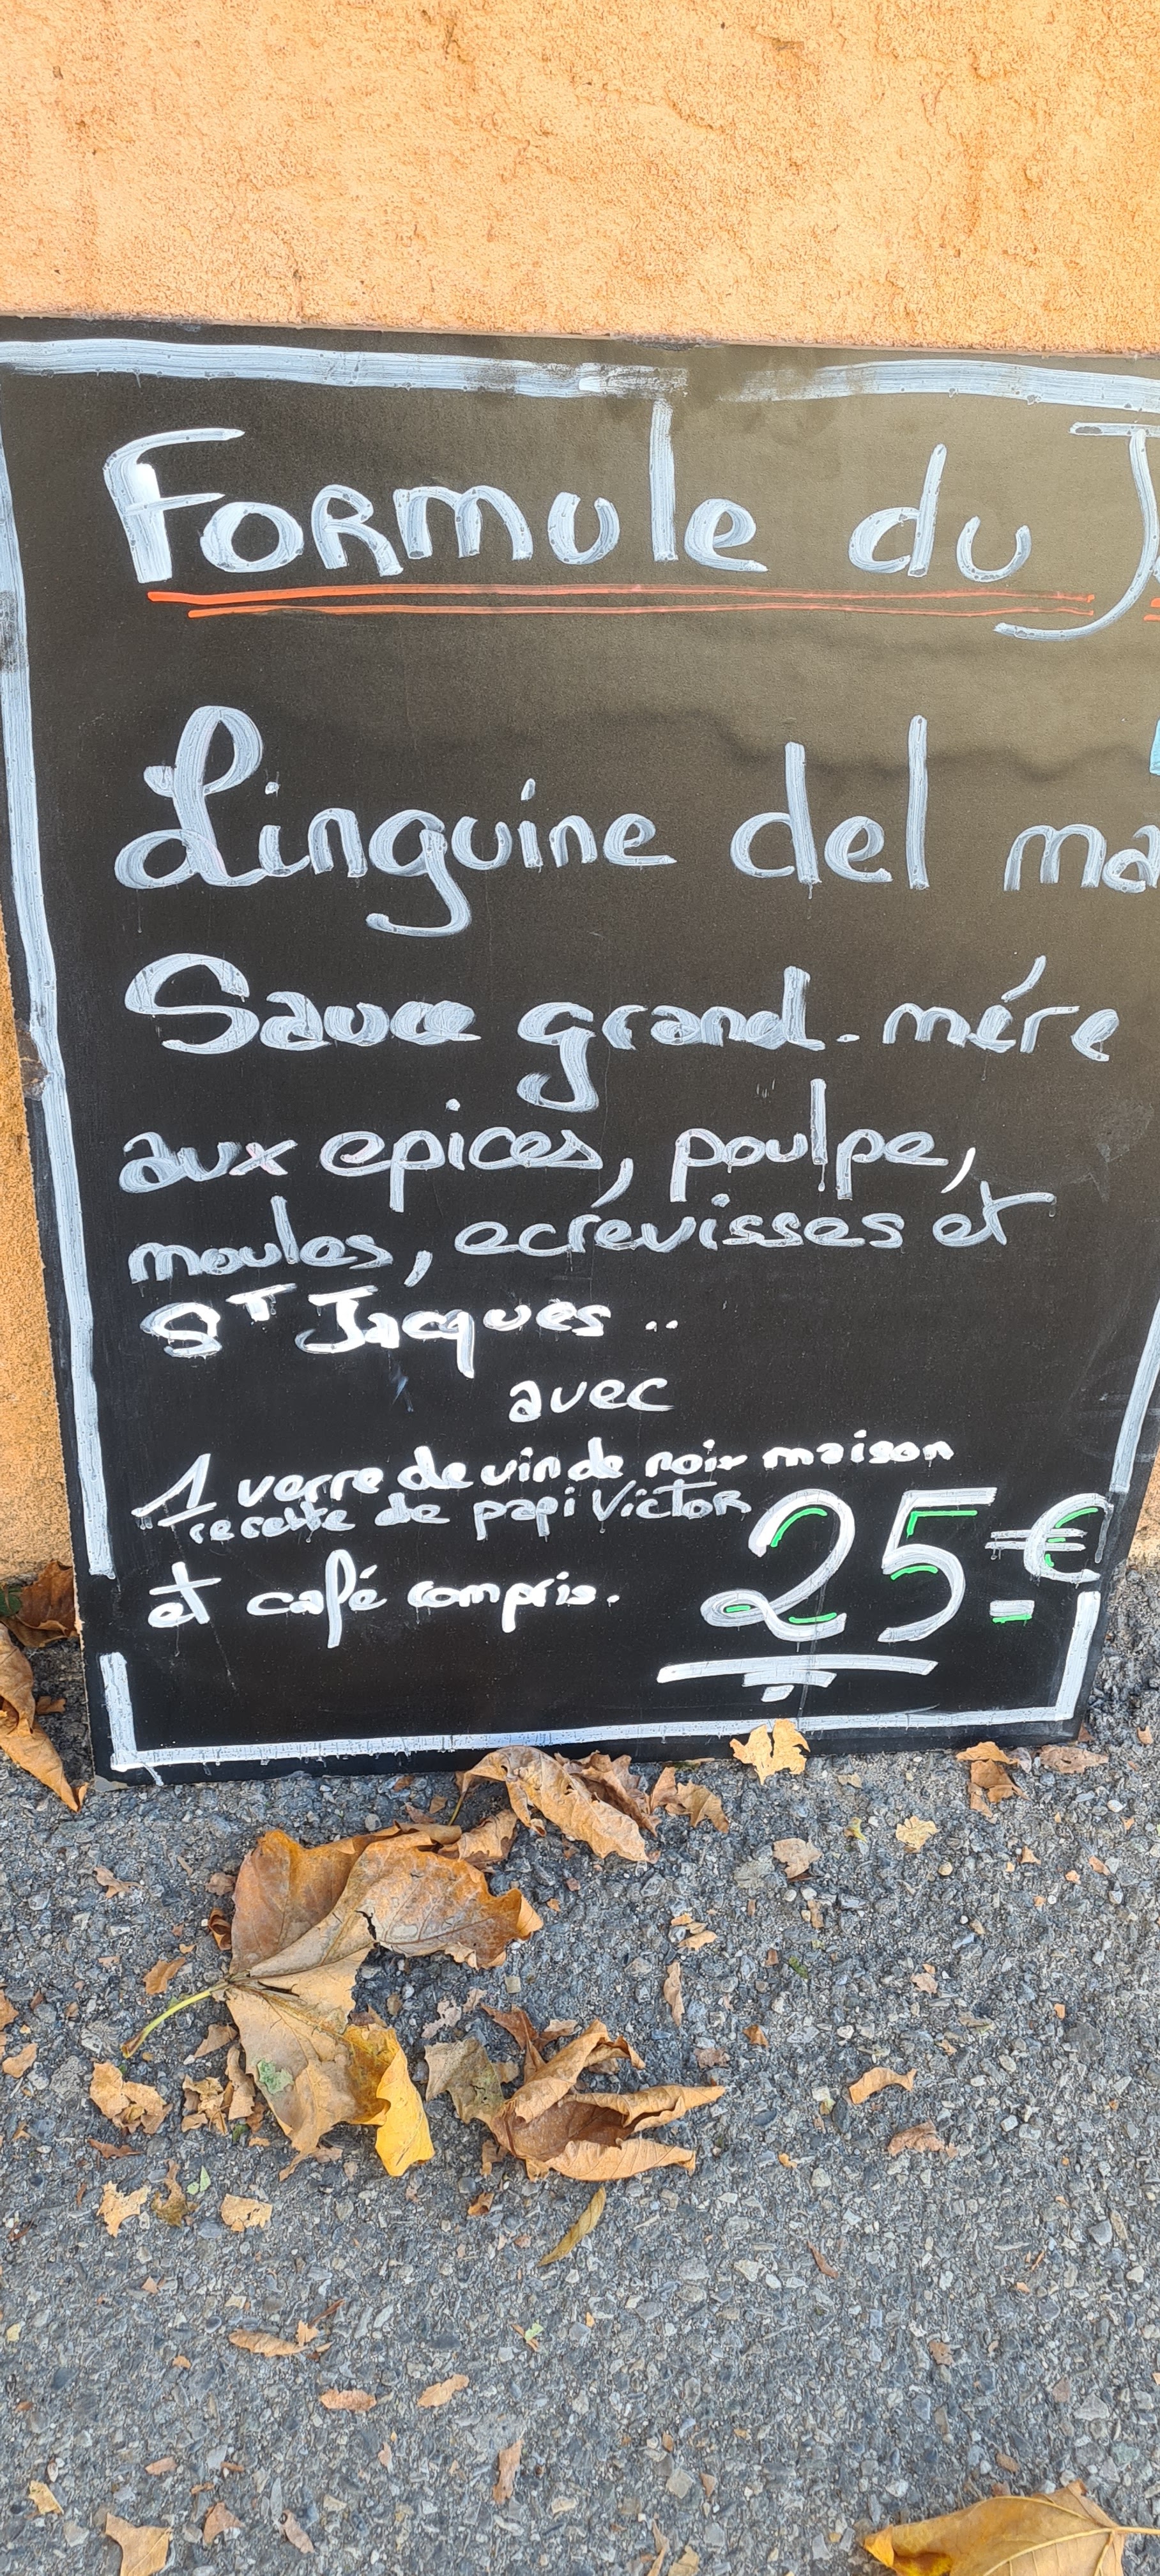 Formule du J
Linguine del ma
Sauce grand-mére
aux epices, poulpe,
moules, ecrevisses et
ST Jacques..
avec
1 verre de vin de noix maison
recette de papi Victor
et café compris.
25.€